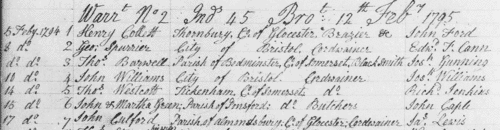 Warrt. No 2 Ind 45 Brot. 12th Feby 1795
5 Feby. 1794 1 Henry Collett Thornbury, C. of Glocester Brazier &c John Ford
8 do. 2 Geo: Spurrier City of Bristol Cordwainer Edwd. T. Cann
do do. 3 Thos. Barwell Parish of Bedminster, C. of Somerset, Black Smith Jos: Gunning
10 do. 4 John Williams City of Bristol Cordwainer Jos: Williams
14 do. 5 Thos. Westcott Tickenham, C. of Somerset do. Richd. Jenkins
16 do. 6 John & Martha Green; Parish of Pensford; do. Butchers John Cagle
17 do. 7 John Culford Parish of almondsbury; C. of Glocester; Cordwainer Jas. Lewis